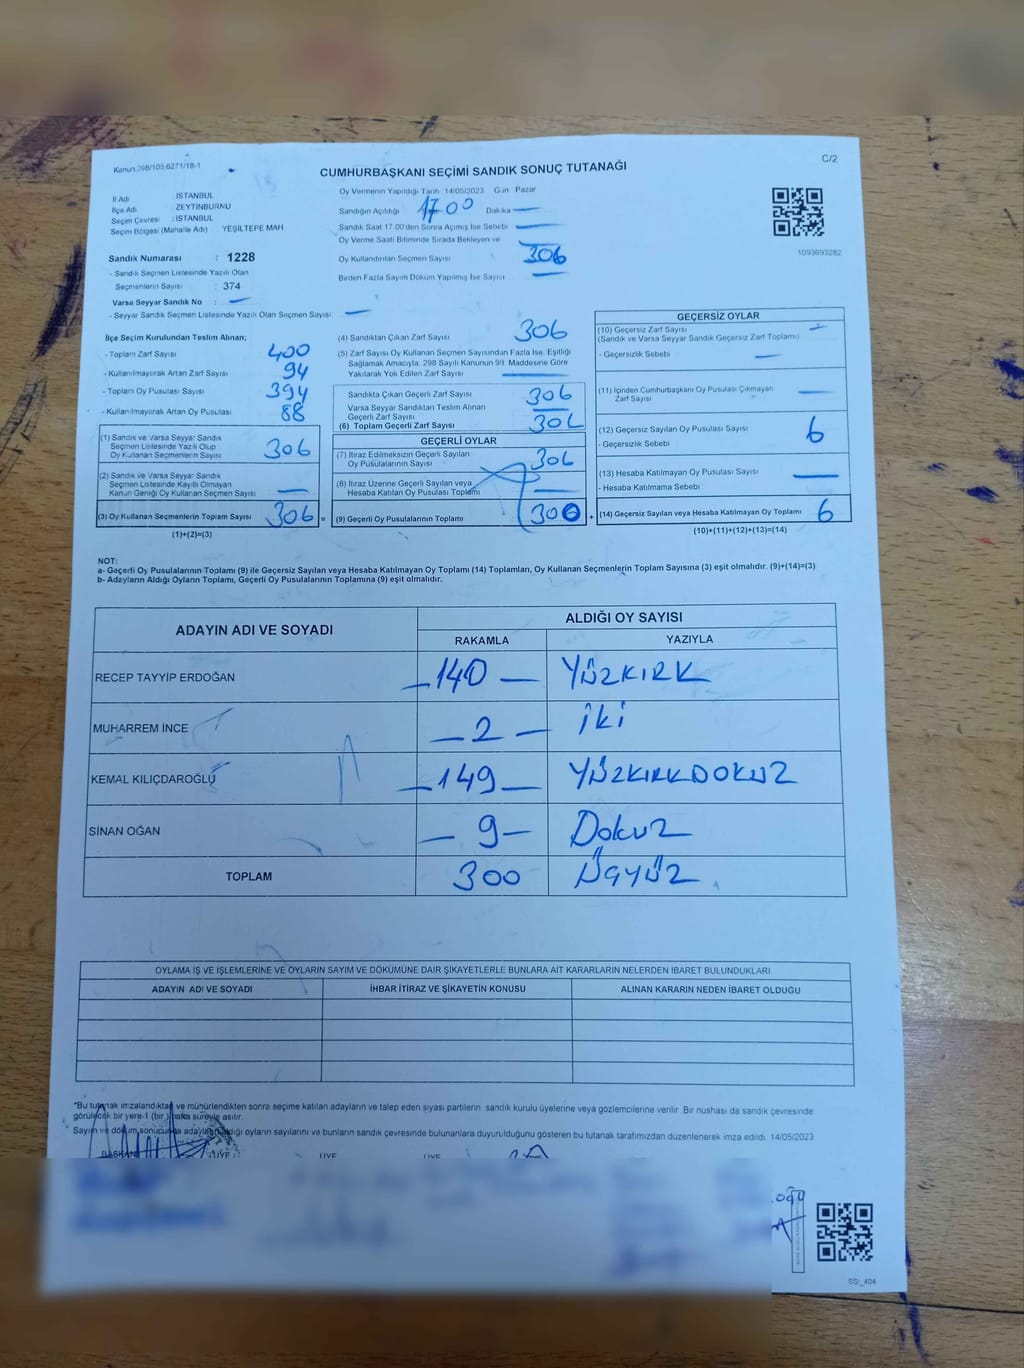 Kanun:298/105,6271/18-1
C/2
CUMHURBAŞKANI SEÇİMİ SANDIK SONUÇ TUTANAĞI
İl Adı : İSTANBUL
İlçe Adı : ZEYTİNBURNU
Seçim Çevresi : İSTANBUL
Seçim Bölgesi (Mahalle Adı) YEŞİLTEPE MAH
Sandık Numarası : 1228
- Sandık Seçmen Listesinde Yazılı Olan
Seçmenlerin Sayısı : 374
Varsa Seyyar Sandık No :
- Seyyar Sandık Seçmen Listesinde Yazılı Olan Seçmen Sayısı:
Oy Vermenin Yapıldığı Tarih 14/05/2023 Gün Pazar
Sandığın Açıldığı 17 00 Dakika
Sandık Saat 17.00'den Sonra Açımış İse Sebebi
Oy Verme Saati Bitiminde Sırada Bekleyen ve
Oy Kullandırılan Seçmen Sayısı 306
Birden Fazla Sayım Döküm Yapılmış İse Sayısı
1093693282
İlçe Seçim Kurulundan Teslim Alınan;
- Toplam Zarf Sayısı 400
- Kullanılmayarak Artan Zarf Sayısı 94
- Toplam Oy Pusulası Sayısı 394
- Kullanılmayarak Artan Oy Pusulası 88
(1) Sandık ve Varsa Seyyar Sandık
Seçmen Listesinde Yazılı Olup
Oy Kullanan Seçmenlerin Sayısı 306
(2) Sandık ve Varsa Seyyar Sandık
Seçmen Listesinde Kayıtlı Olmayan
Kanun Gereği Oy Kullanan Seçmen Sayısı
(3) Oy Kullanan Seçmenlerin Toplam Sayısı 306 =
(1)+(2)=(3)
(4) Sandıktan Çıkan Zarf Sayısı 306
(5) Zarf Sayısı Oy Kullanan Seçmen Sayısından Fazla İse, Eşitliği
Sağlamak Amacıyla, 298 Sayılı Kanunun 99. Maddesine Göre
Yakılarak Yok Edilen Zarf Sayısı
Sandıkta Çıkan Geçerli Zarf Sayısı 306
Varsa Seyyar Sandıktan Teslim Alınan
Geçerli Zarf Sayısı
(6) Toplam Geçerli Zarf Sayısı 306
GEÇERLİ OYLAR
(7) İtiraz Edilmeksizin Geçerli Sayılan
Oy Pusulalarının Sayısı 306
(8) İtiraz Üzerine Geçerli Sayılan veya
Hesaba Katılan Oy Pusulası Toplamı
(9) Geçerli Oy Pusulalarının Toplamı 300 +
GEÇERSİZ OYLAR
(10) Geçersiz Zarf Sayısı
(Sandık ve Varsa Seyyar Sandık Geçersiz Zarf Toplamı)
- Geçersizlik Sebebi
(11) İçinden Cumhurbaşkanı Oy Pusulası Çıkmayan
Zarf Sayısı
(12) Geçersiz Sayılan Oy Pusulası Sayısı 6
- Geçersizlik Sebebi
(13) Hesaba Katılmayan Oy Pusulası Sayısı
- Hesaba Katılmama Sebebi
(14) Geçersiz Sayılan veya Hesaba Katılmayan Oy Toplamı 6
(10)+(11)+(12)+(13)=(14)
NOT:
a- Geçerli Oy Pusulalarının Toplamı (9) ile Geçersiz Sayılan veya Hesaba Katılmayan Oy Toplamı (14) Toplamları, Oy Kullanan Seçmenlerin Toplam Sayısına (3) eşit olmalıdır. (9)+(14)=(3)
b- Adayların Aldığı Oyların Toplamı, Geçerli Oy Pusulalarının Toplamına (9) eşit olmalıdır.
ADAYIN ADI VE SOYADI
ALDIĞI OY SAYISI
RAKAMLA YAZIYLA
RECEP TAYYİP ERDOĞAN 140 YÜZKIRK
MUHARREM İNCE 2 iki
KEMAL KILIÇDAROĞLU 149 YÜZKIRKDOKUZ
SİNAN OĞAN 9 Dokuz
TOPLAM 300 Üçyüz
OYLAMA İŞ VE İŞLEMLERİNE VE OYLARIN SAYIM VE DÖKÜMÜNE DAİR ŞİKAYETLERLE BUNLARA AİT KARARLARIN NELERDEN İBARET BULUNDUKLARI
ADAYIN ADI VE SOYADI İHBAR İTİRAZ VE ŞİKAYETİN KONUSU ALINAN KARARIN NEDEN İBARET OLDUĞU
*Bu tutanak imzalandıktan ve mühürlendikten sonra seçime katılan adayların ve talep eden siyasi partilerin sandık kurulu üyelerine veya gözlemcilerine verilir. Bir nüshası da sandık çevresinde
görülecek bir yere 1 (bir) hafta süreyle asılır.
Sayım ve döküm sonucunda adayların aldığı oyların sayılarını ve bunların sandık çevresinde bulunanlara duyurulduğunu gösteren bu tutanak tarafımızdan düzenlenerek imza edildi. 14/05/2023
BAŞKAN ÜYE ÜYE ÜYE